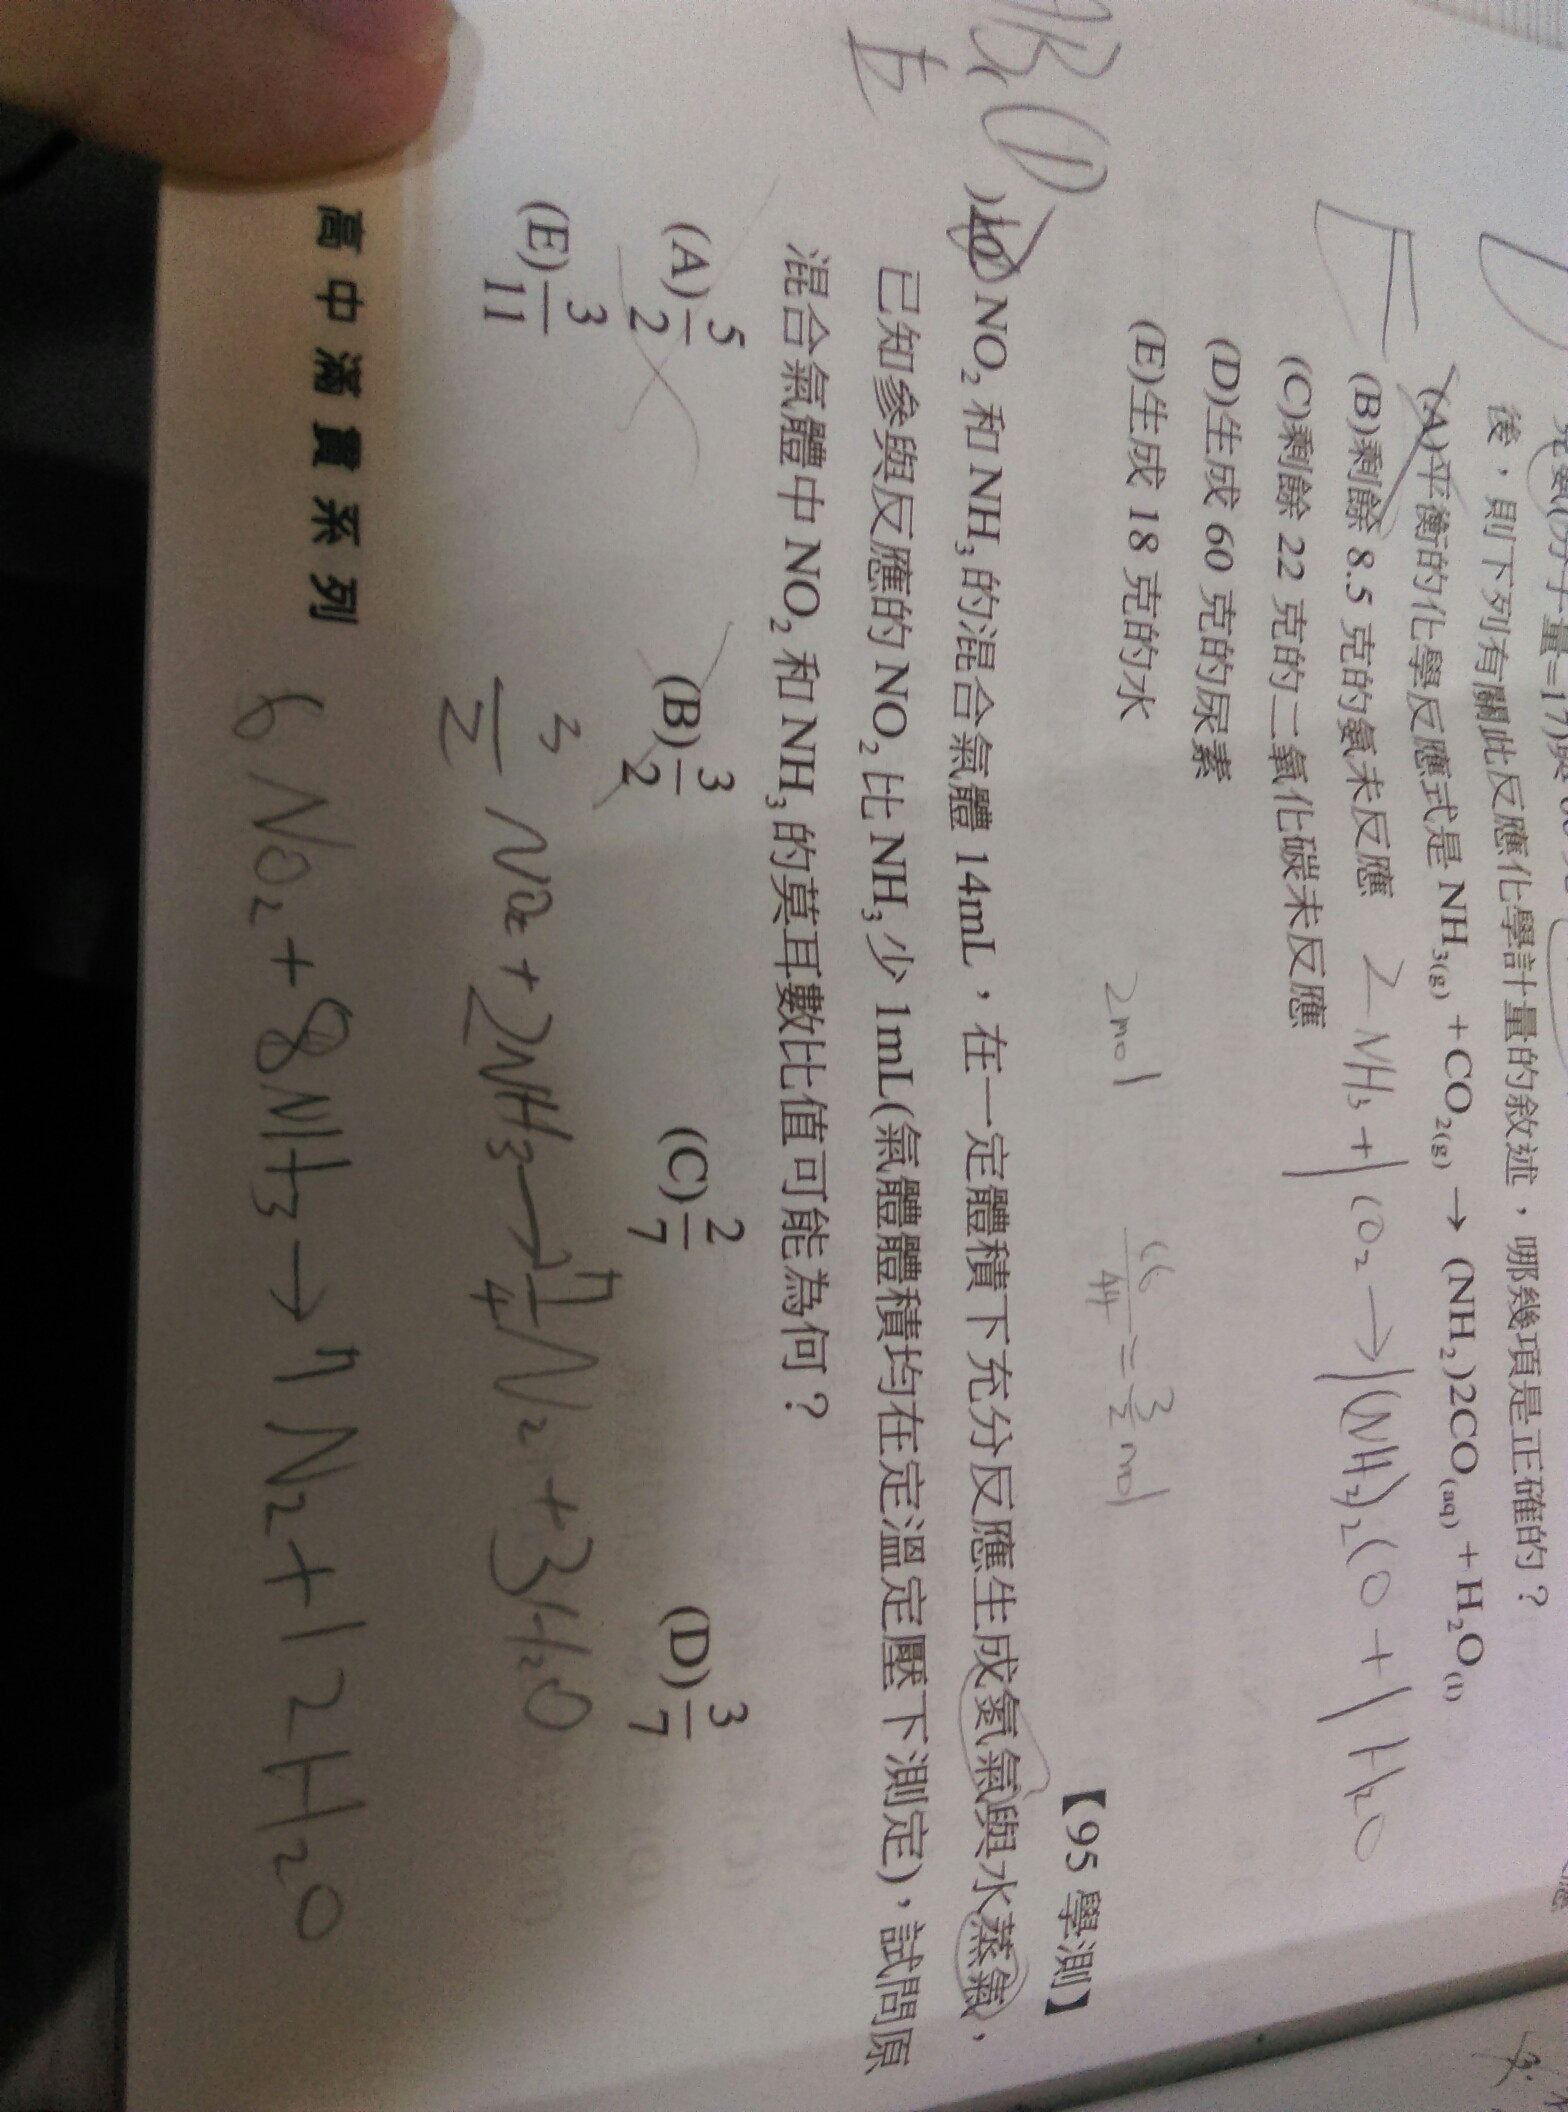 後，則下列有關此反應化學計量的敘述，哪幾項是正確的？
(A)平衡的化學反應式是 NH₃(g) + CO₂(g) → (NH₂)2CO(aq) + H₂O(l)
(B)剩餘 8.5 克的氨未反應
2NH₃ + 1CO₂ → 1(NH₂)₂CO + 1H₂O
(C)剩餘 22 克的二氧化碳未反應
(D)生成 60 克的尿素
(E)生成 18 克的水
2mol
66/44 = 3/2 mol
【95 學測】
)10. NO₂ 和 NH₃ 的混合氣體 14mL，在一定體積下充分反應生成氮氣與水蒸氣，
已知參與反應的 NO₂ 比 NH₃ 少 1mL(氣體體積均在定溫定壓下測定)，試問原
混合氣體中 NO₂ 和 NH₃ 的莫耳數比值可能為何？
(A) 5/2 (B) 3/2 (C) 2/7 (D) 3/7
(E) 3/11
3/2 NO₂ + 2NH₃ → 7/4 N₂ + 3H₂O
高中滿貫系列
6NO₂ + 8NH₃ → 7N₂ + 12H₂O